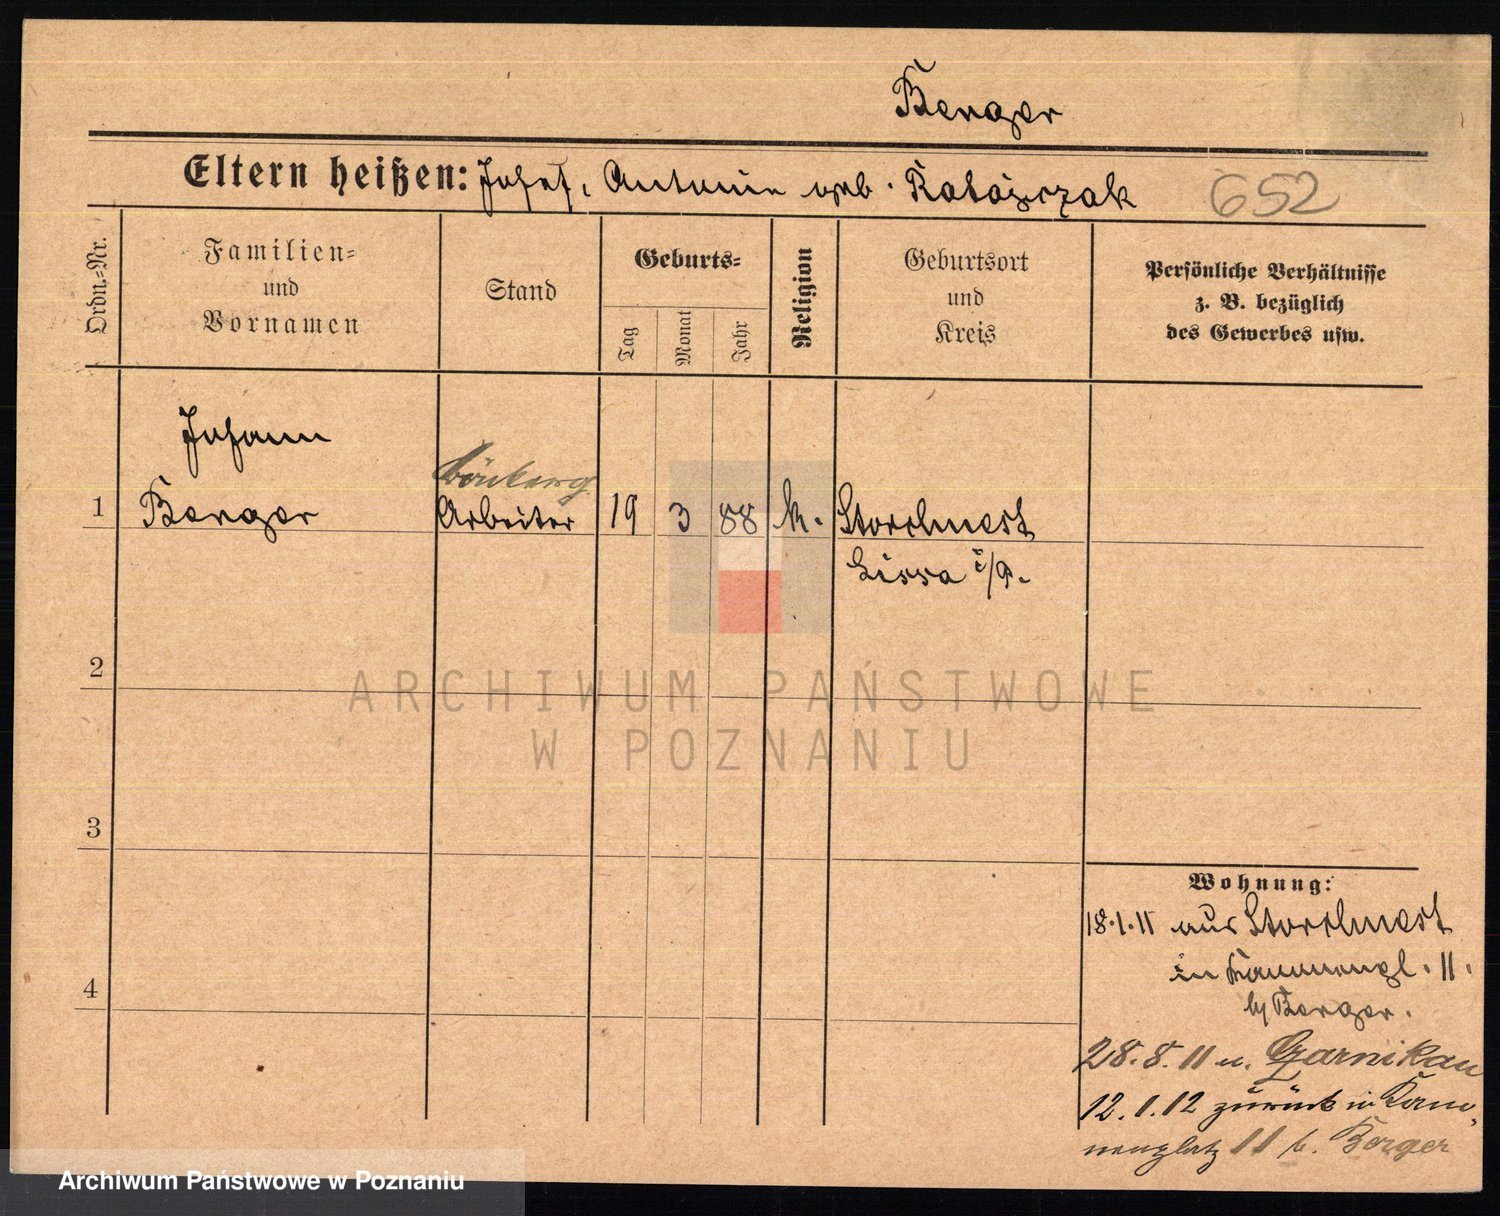 Berger
Eltern heißen: Josef, Antonie geb. Ratajczak 652
Ordn.-Nr.
Familien-
und
Vornamen
Stand
Geburts-
Tag
Monat
Jahr
Religion
Geburtsort
und
Kreis
Persönliche Verhältnisse
z. B. bezüglich
des Gewerbes usw.
Johann
1 Berger Arbeiter 19 3 88 k. Storchnest
Lissa i/P.
2
3
4
Wohnung:
18.1.11 aus Storchnest
in 11.
by Berger.
28.8.11 n. Czarnikau
12.1.12 zurück in
11 b. Berger
ARCHIWUM PAŃSTWOWE
W POZNANIU
Archiwum Państwowe w Poznaniu